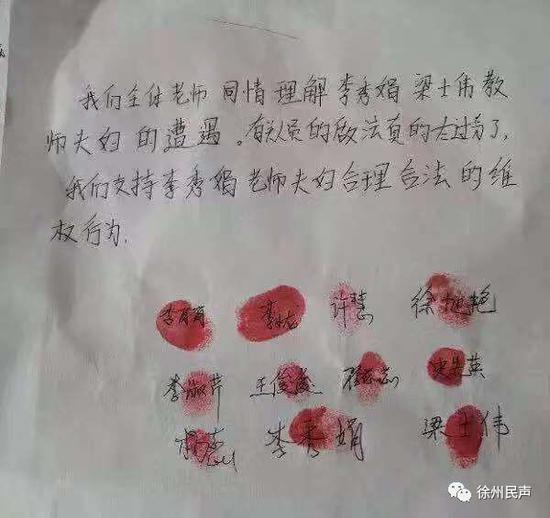 我们全体老师同情理解李秀娟梁士伟教
师夫妇的遭遇。有关人员的做法真的太过分了,
我们支持李秀娟老师夫妇合理合法的维
权行为.
许慧 徐旭艳
李淑芹
李秀娟 梁士伟
徐州民声